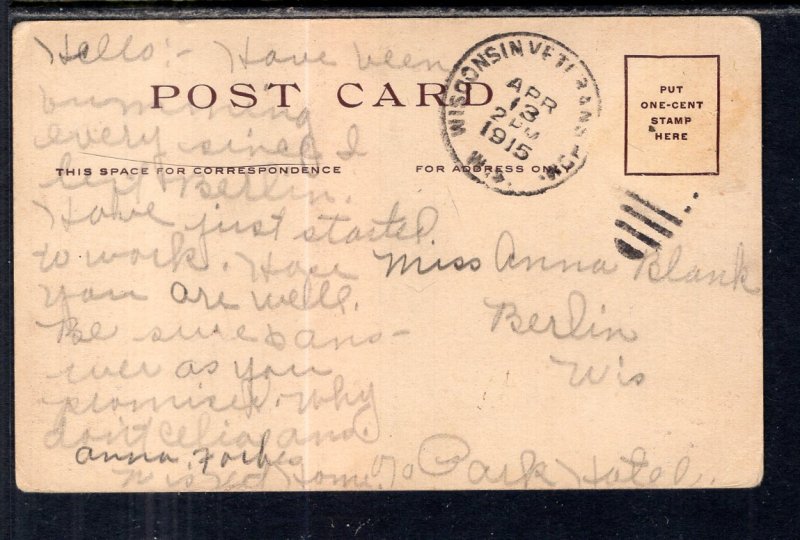 Hello:- Have been
bumming
every since I
left Berlin.
Have just started
to work. Hope
you are well.
Be sure & ans-
wer as you
promised. Why
don't Celia, and.
Anna Forbes
Wis Vet Home. c/o Park Hotel.
POST CARD
THIS SPACE FOR CORRESPONDENCE
FOR ADDRESS ONLY
WISCONSIN VETERANS HOME
WIS.
APR
13
2 PM
1915
PUT
ONE-CENT
STAMP
HERE
Miss Anna Blank
Berlin
Wis